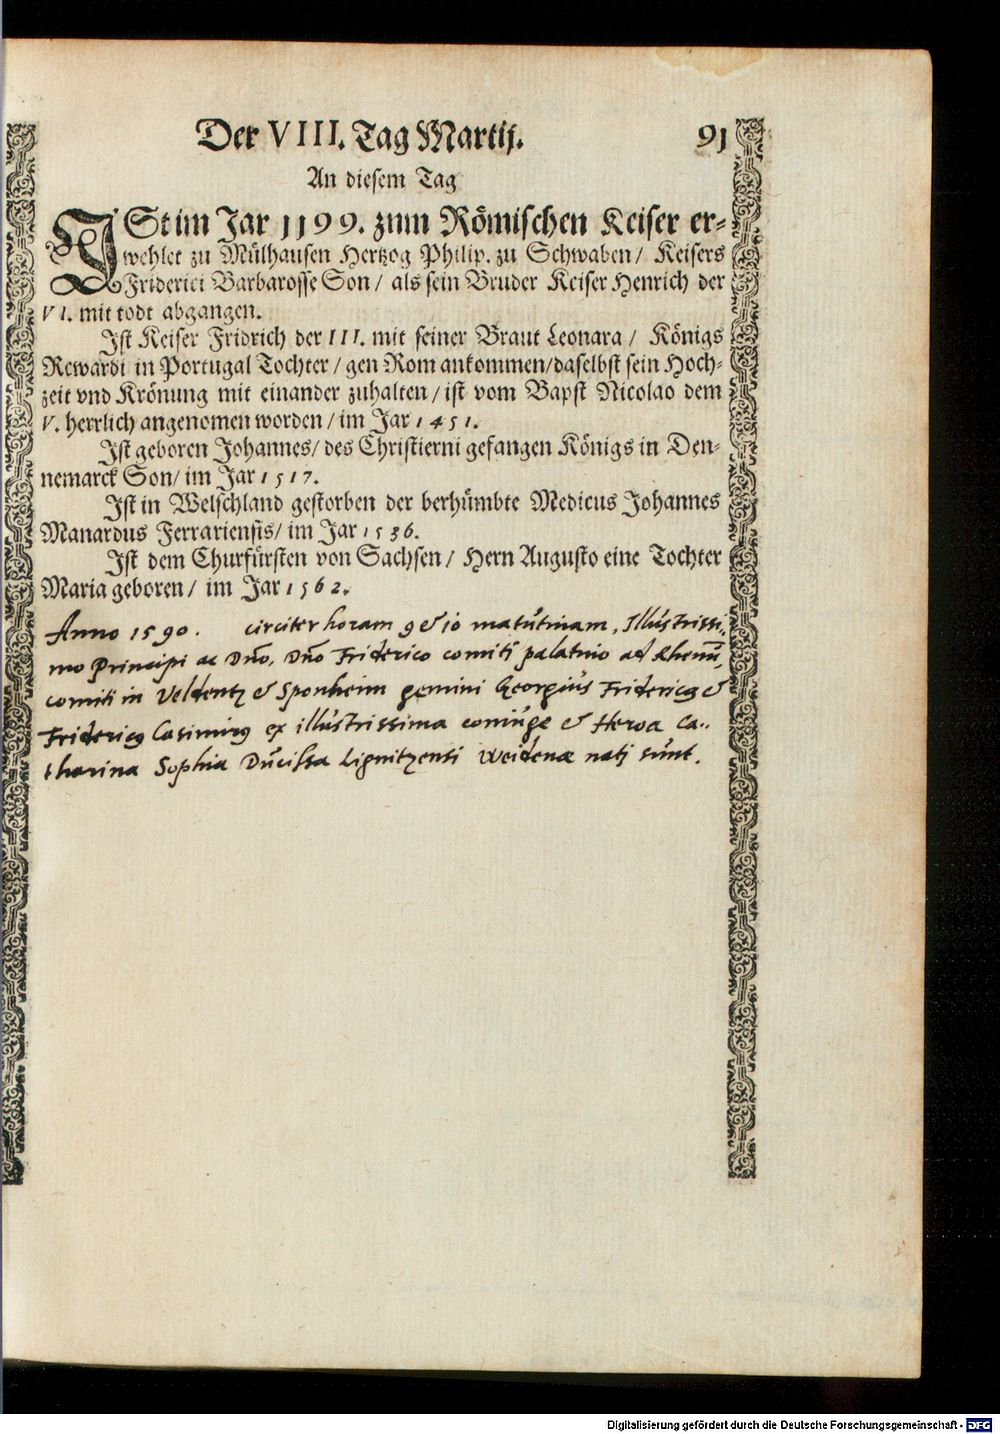 Der VIII. Tag Martij. 91
An diesem Tag
ISt im Jar 1199. zum Römischen Keiser er-
wehlet zu Mülhausen Hertzog Philip. zu Schwaben / Keisers
Friderici Barbarosse Son / als sein Bruder Keiser Henrich der
VI. mit todt abgangen.
Ist Keiser Fridrich der III. mit seiner Braut Leonara / Königs
Rewardi in Portugal Tochter / gen Rom ankommen / daselbst sein Hoch-
zeit vnd Krönung mit einander zuhalten / ist vom Bapst Nicolao dem
V. herrlich angenomen worden / im Jar 1451.
Ist geboren Johannes / des Christierni gefangen Königs in Den-
nemarck Son / im Jar 1517.
Ist in Welschland gestorben der berhümbte Medicus Johannes
Manardus Ferrariensis / im Jar 1536.
Ist dem Churfürsten von Sachsen / Hern Augusto eine Tochter
Maria geboren / im Jar 1562.
Anno 1590. circiter horam 9 & 10 matutinam, Illustrissi-
mo Principi ac Dño, Dño Friderico comiti palatino ad Rhenū,
comiti in Veldentz & Sponheim gemini Georgius Fridericus &
Fridericus Casimirus ex illustrissima coniuge & Heroa Ca-
tharina Sophia Ducissa Lignitzensi Weidenæ nati sunt.
Digitalisierung gefördert durch die Deutsche Forschungsgemeinschaft - DFG